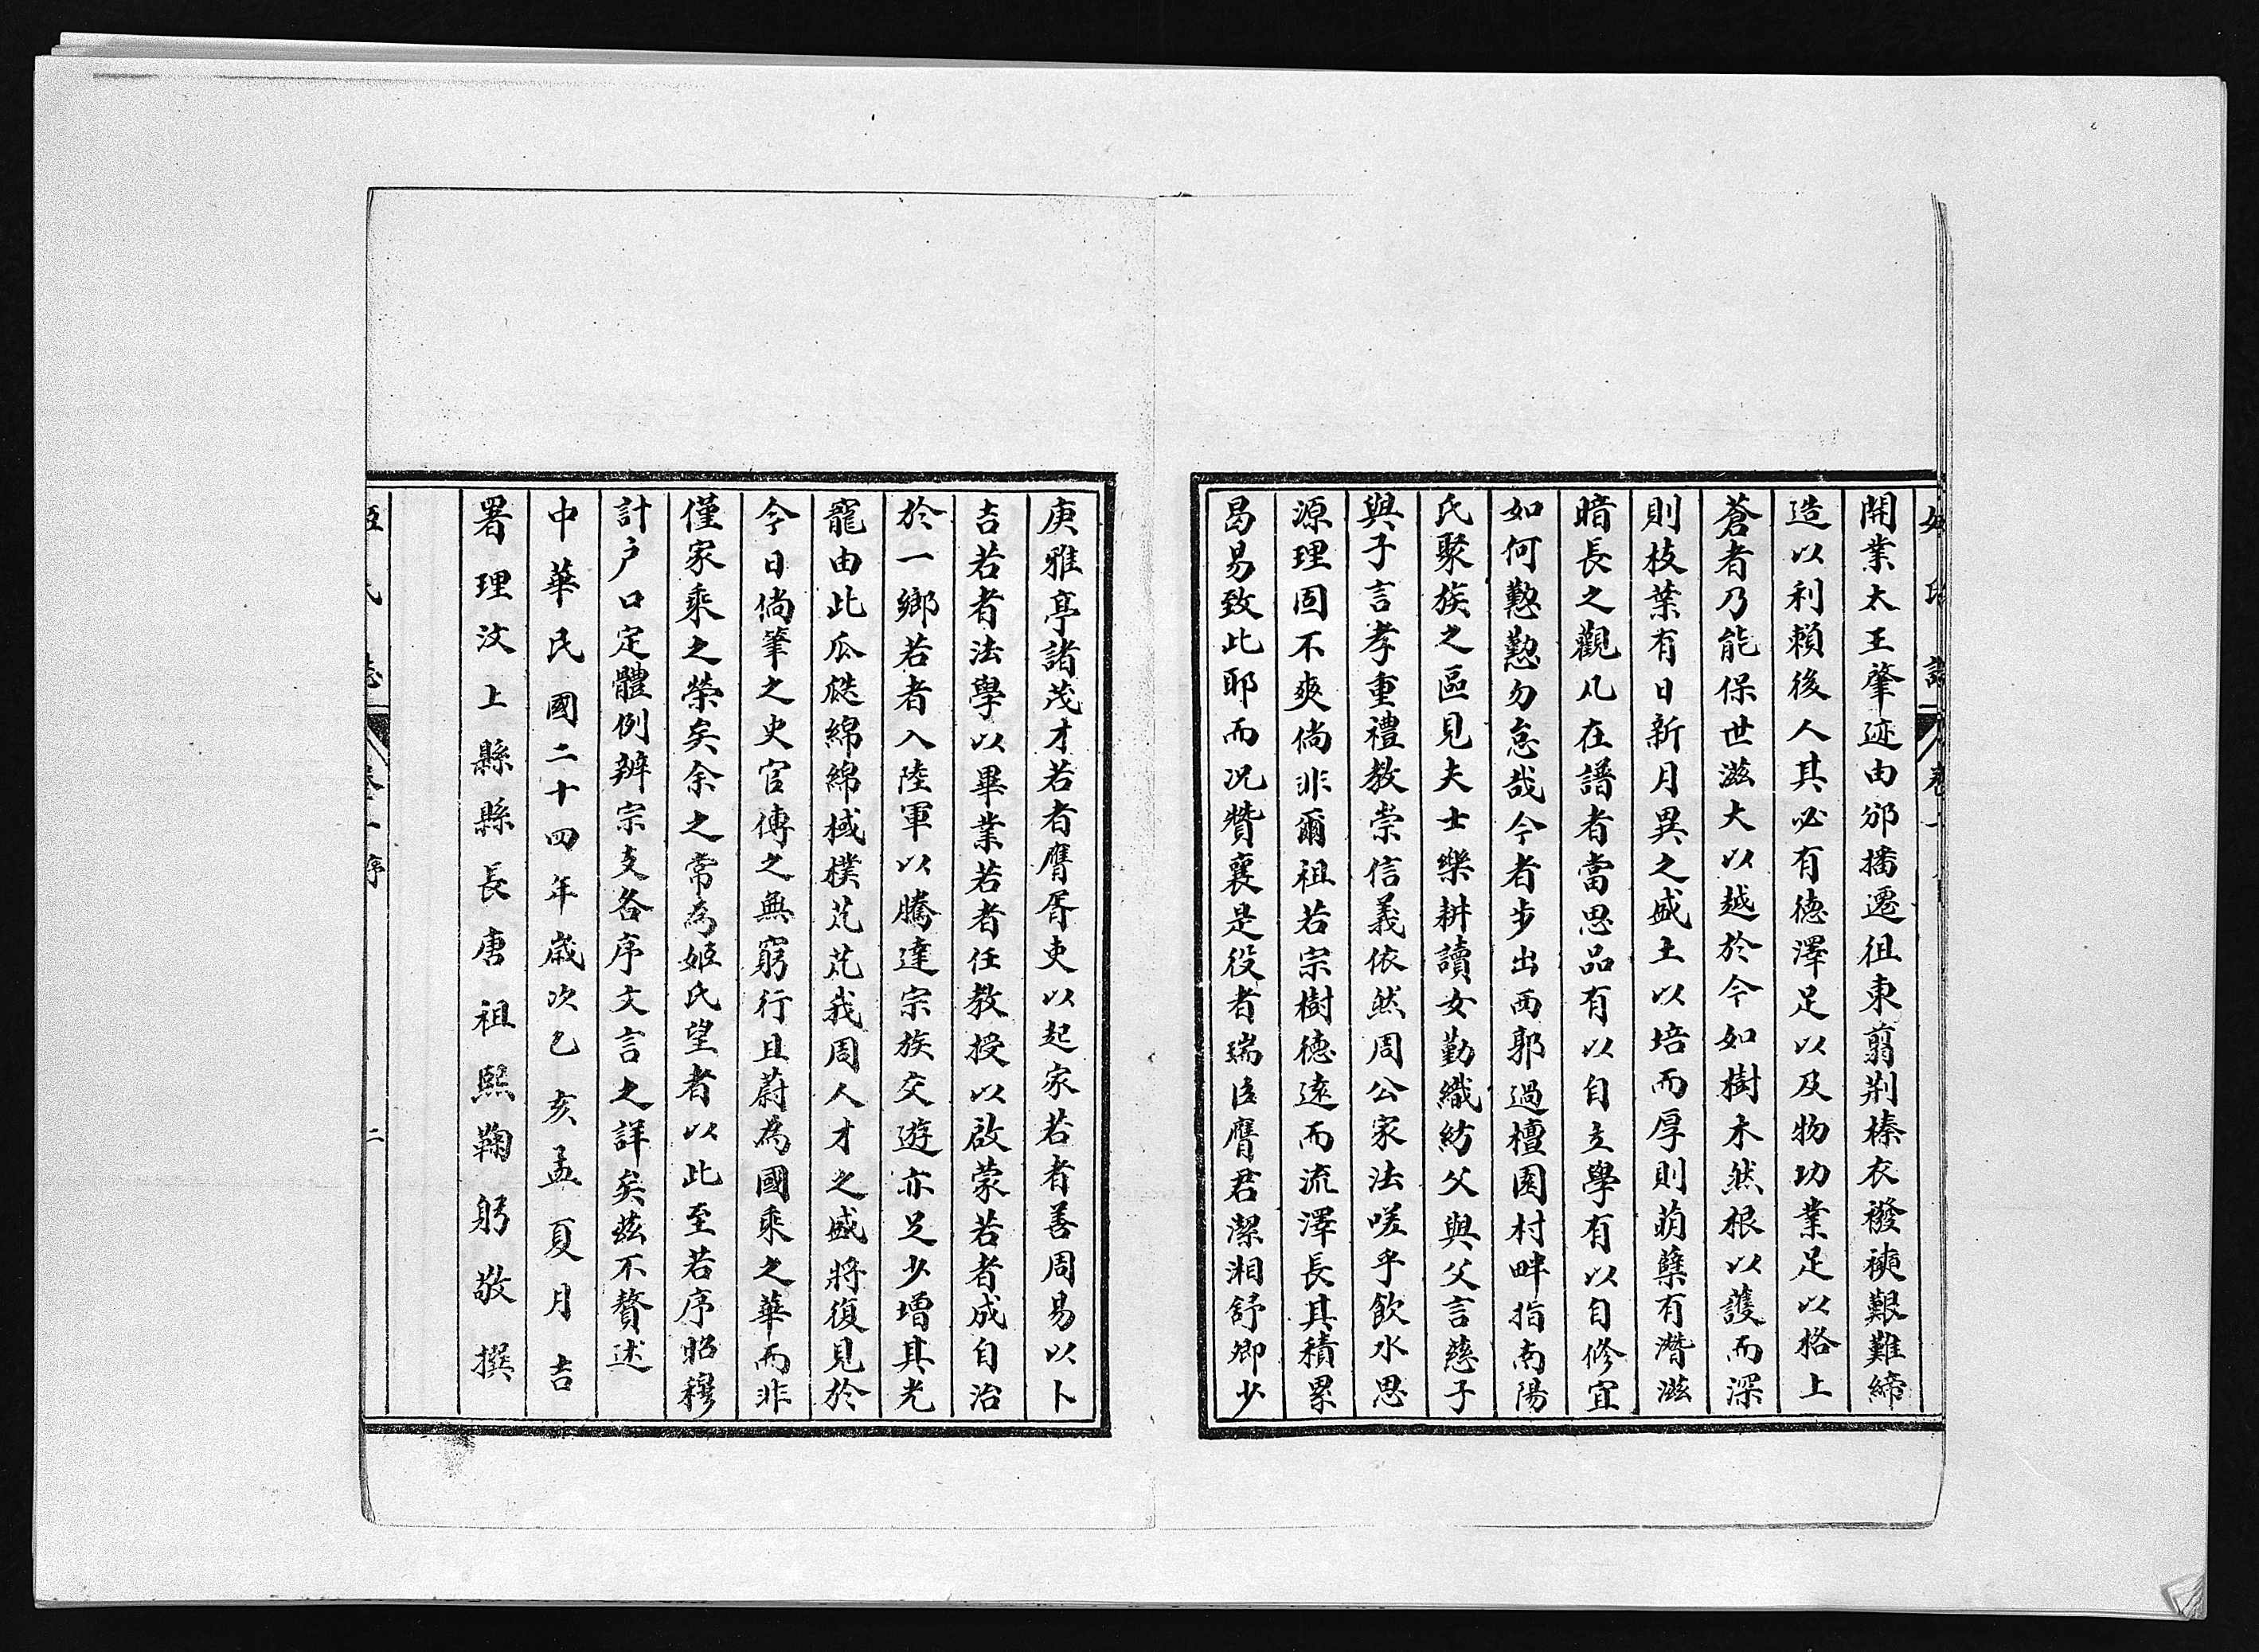 開業太王肇迹由邠播遷徂東翦荆榛衣襏襫艱難締
造以利賴後人其必有德澤足以及物功業足以格上
蒼者乃能保世滋大以越於今如樹木然根以護而深
則枝葉有日新月異之盛土以培而厚則萌蘖有潛滋
暗長之觀凡在譜者當思品有以自立學有以自修宜
如何懃懃勿怠哉今者步出西郭過檀園村畔指南陽
氏聚族之區見夫士樂耕讀女勤織紡父與父言慈子
與子言孝重禮教崇信義依然周公家法嗟乎飲水思
源理固不爽倘非爾祖若宗樹德遠而流澤長其積累
曷易致此耶而况贊襄是役者瑞臣膺君潔湘舒卿少
庚雅亭諸茂才若者膺胥吏以起家若者善周易以卜
吉若者法學以畢業若者任教授以啟蒙若者成自治
於一鄉若者入陸軍以騰達宗族交遊亦足少增其光
寵由此瓜瓞綿綿棫樸芃芃我周人才之盛將復見於
今日倘筆之史官傳之無窮行且蔚為國乘之華而非
僅家乘之榮矣余之常為姬氏望者以此至若序昭穆
計户口定體例辨宗支各序文言之詳矣茲不贅述
中華民國二十四年歲次乙亥孟夏月吉
署理汶上縣縣長唐祖熙鞠躬敬撰
氏 志 卷一 序 二